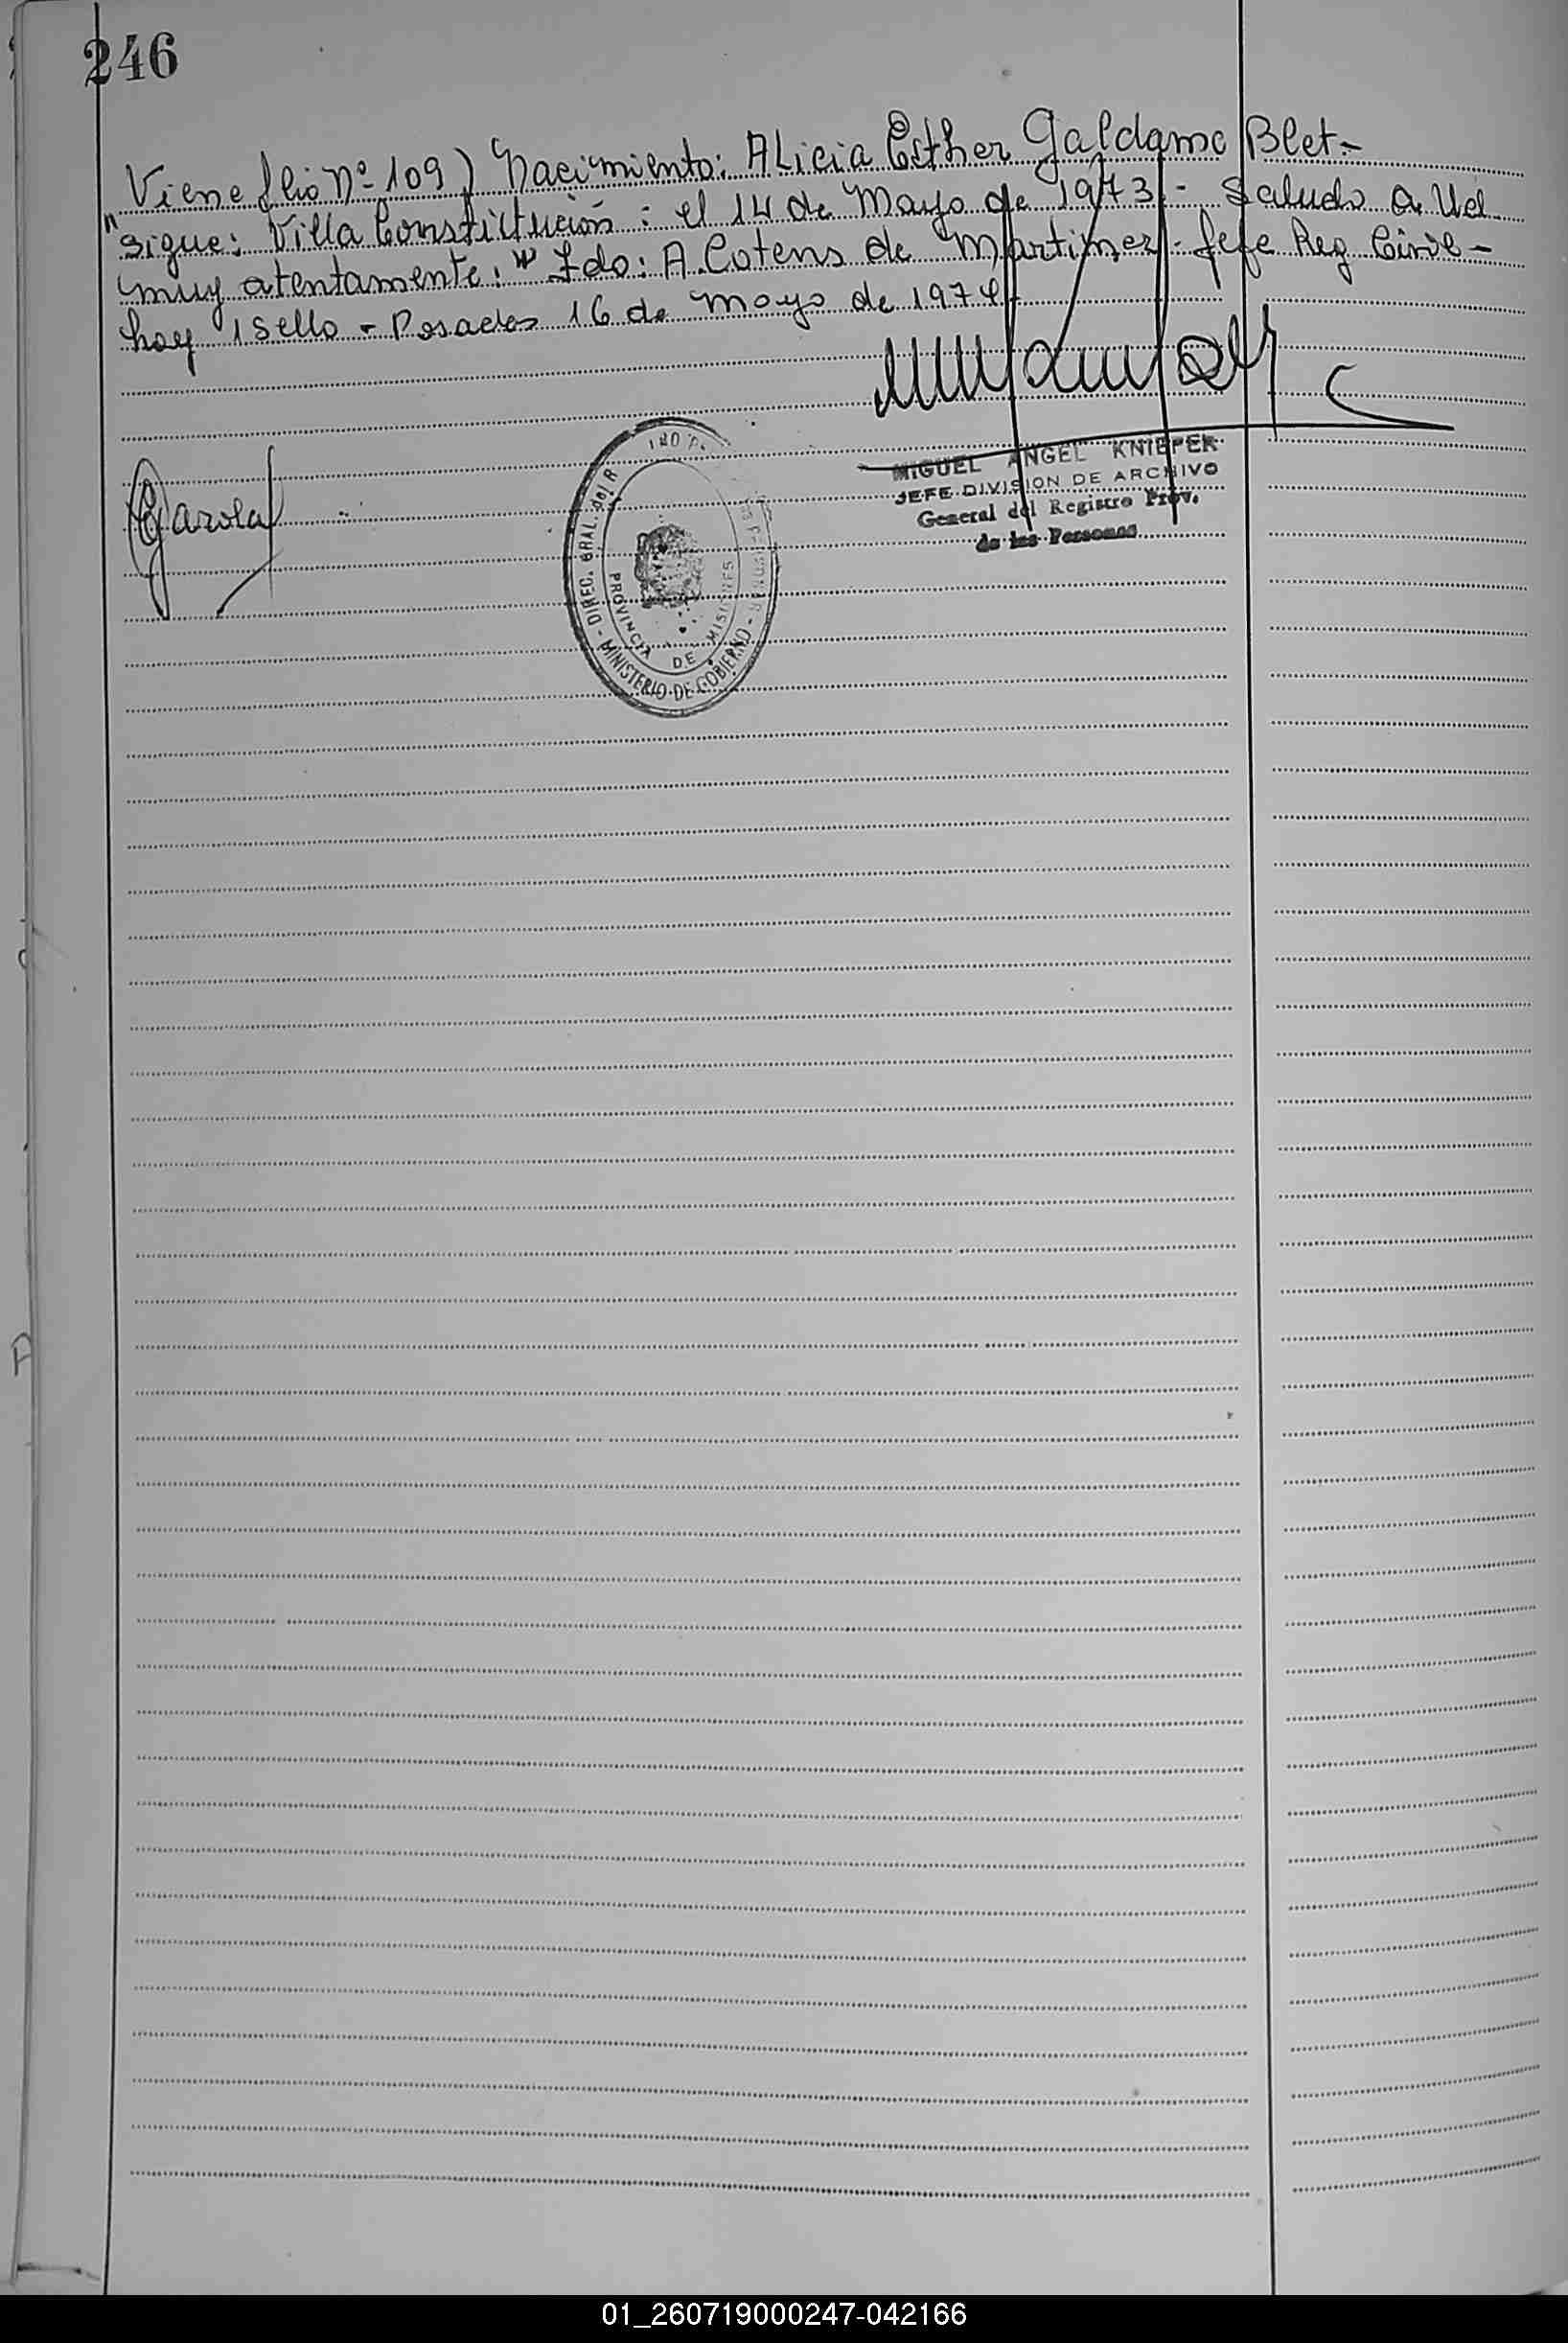 246
Viene flio Nº 109) Nacimiento: Alicia Esther Galdame Blet-
"Sigue: Villa Constitución: el 14 de Mayo de 1973 - Saluda a Ud
muy atentamente." Fdo: A. Cotens de Martinez - Jefe Reg Civil -
hay 1 sello - Posadas 16 de Mayo de 1974
MIGUEL ANGEL KNIEPER
JEFE DIVISION DE ARCHIVO
General del Registro Prov.
de las Personas
Garola
DIREC. GRAL. del R
MINISTERIO DE GOBIERNO
PROVINCIA DE MISIONES
01_260719000247-042166